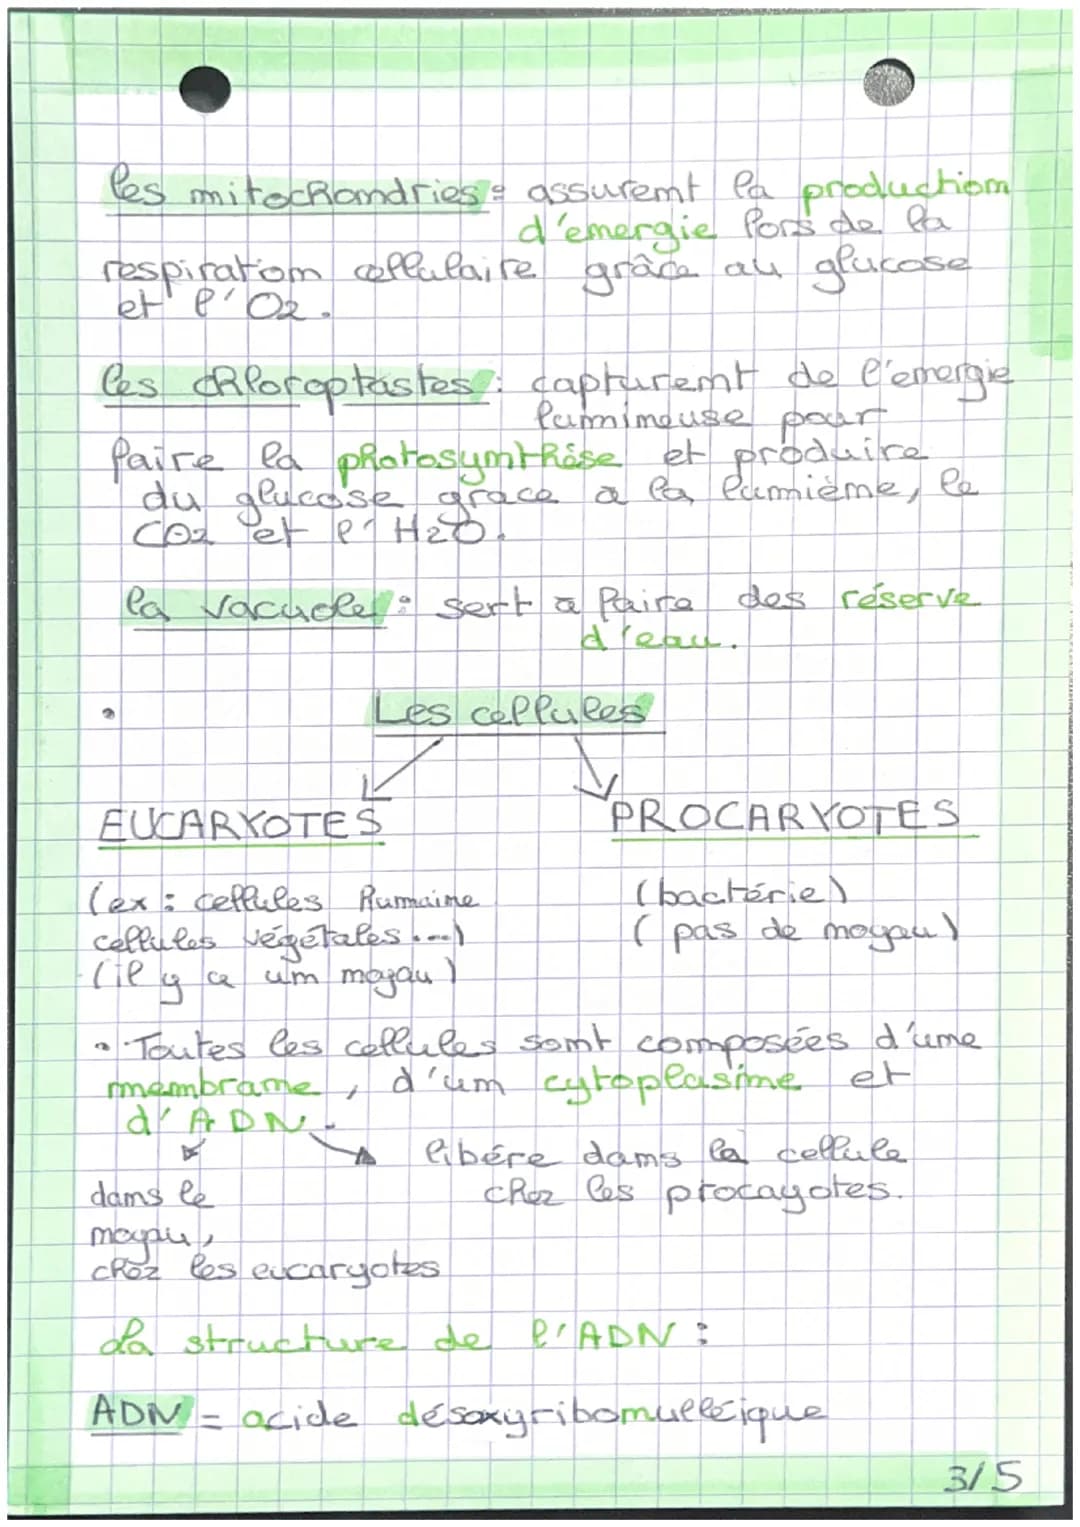 les mitochondries : assurent la production
d'énergie lors de la
respiration cellulaire grâce au glucose
et l'O2.
les chloroplastes : capturent de l'énergie
lumineuse pour
faire la photosynthèse et produire
du glucose grace a la lumière, le
CO2 et l'H2O.
la vacuole : sert a faire des réserve
d'eau.
• Les cellules
EUCARYOTES PROCARYOTES
(ex : cellules humaine (bactérie)
cellules végétales ...) (pas de noyau)
(il y a un noyau)
• Toutes les cellules sont composées d'une
membrane, d'un cytoplasme et
d'ADN.
libére dans la cellule
dans le chez les procayotes.
noyau,
chez les eucaryotes
La structure de l'ADN :
ADN = acide désoxyribonucléique
3/5